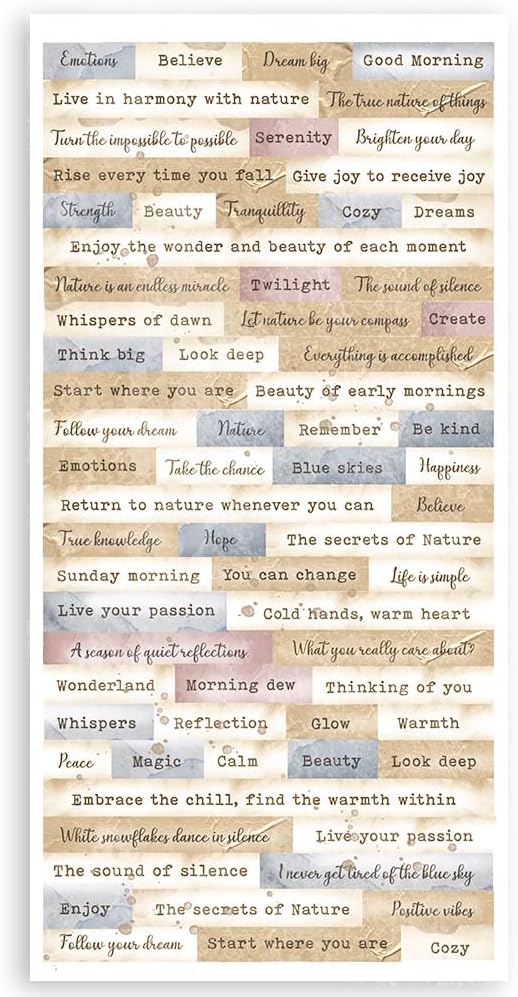 Emotions Believe Dream big Good Morning
Live in harmony with nature The true nature of things
Turn the impossible to possible Serenity Brighten your day
Rise every time you fall Give joy to receive joy
Strength Beauty Tranquillity Cozy Dreams
Enjoy the wonder and beauty of each moment
Nature is an endless miracle Twilight The sound of silence
Whispers of dawn Let nature be your compass Create
Think big Look deep Everything is accomplished
Start where you are Beauty of early mornings
Follow your dream Nature Remember Be kind
Emotions Take the chance Blue skies Happiness
Return to nature whenever you can Believe
True knowledge Hope The secrets of Nature
Sunday morning You can change Life is simple
Live your passion Cold hands, warm heart
A season of quiet reflections What you really care about?
Wonderland Morning dew Thinking of you
Whispers Reflection Glow Warmth
Peace Magic Calm Beauty Look deep
Embrace the chill, find the warmth within
White snowflakes dance in silence Live your passion
The sound of silence I never get tired of the blue sky
Enjoy The secrets of Nature Positive vibes
Follow your dream Start where you are Cozy